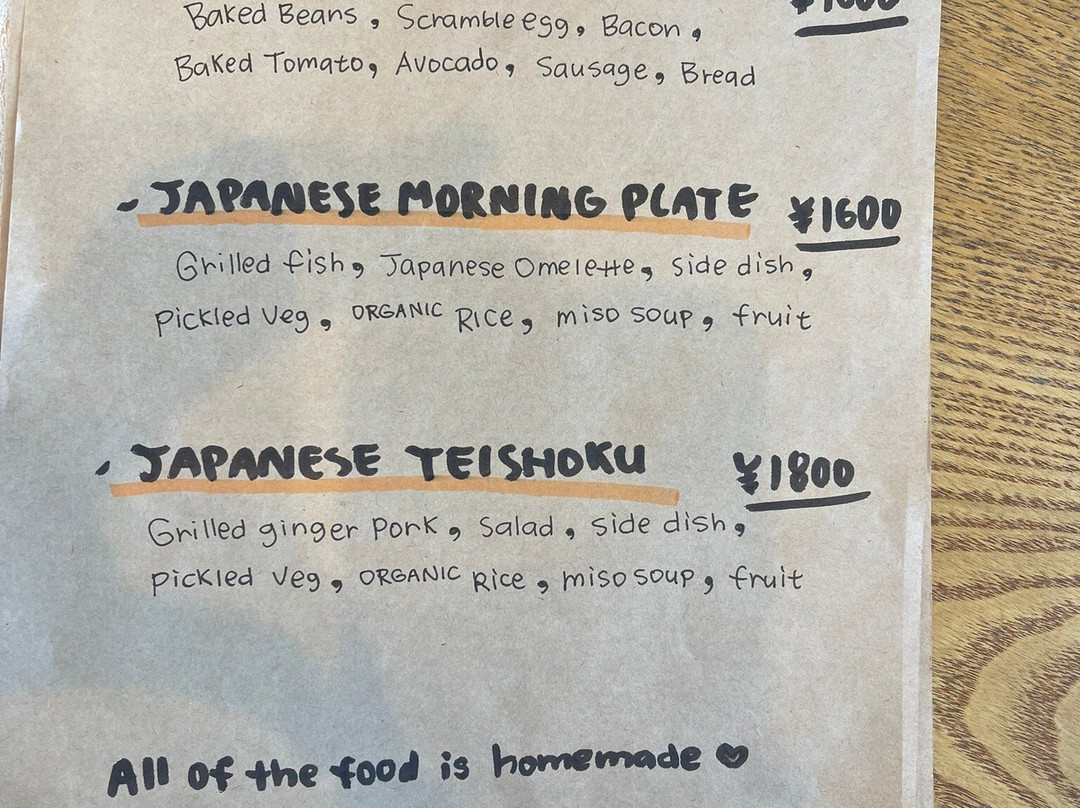 Baked Beans, Scramble egg, Bacon,
Baked Tomato, Avocado, Sausage, Bread
- JAPANESE MORNING PLATE ¥1600
Grilled fish, Japanese Omelette, side dish,
Pickled Veg, ORGANIC Rice, miso soup, fruit
- JAPANESE TEISHOKU ¥1800
Grilled ginger Pork, Salad, side dish,
Pickled Veg, ORGANIC Rice, miso soup, fruit
All of the food is homemade ♥